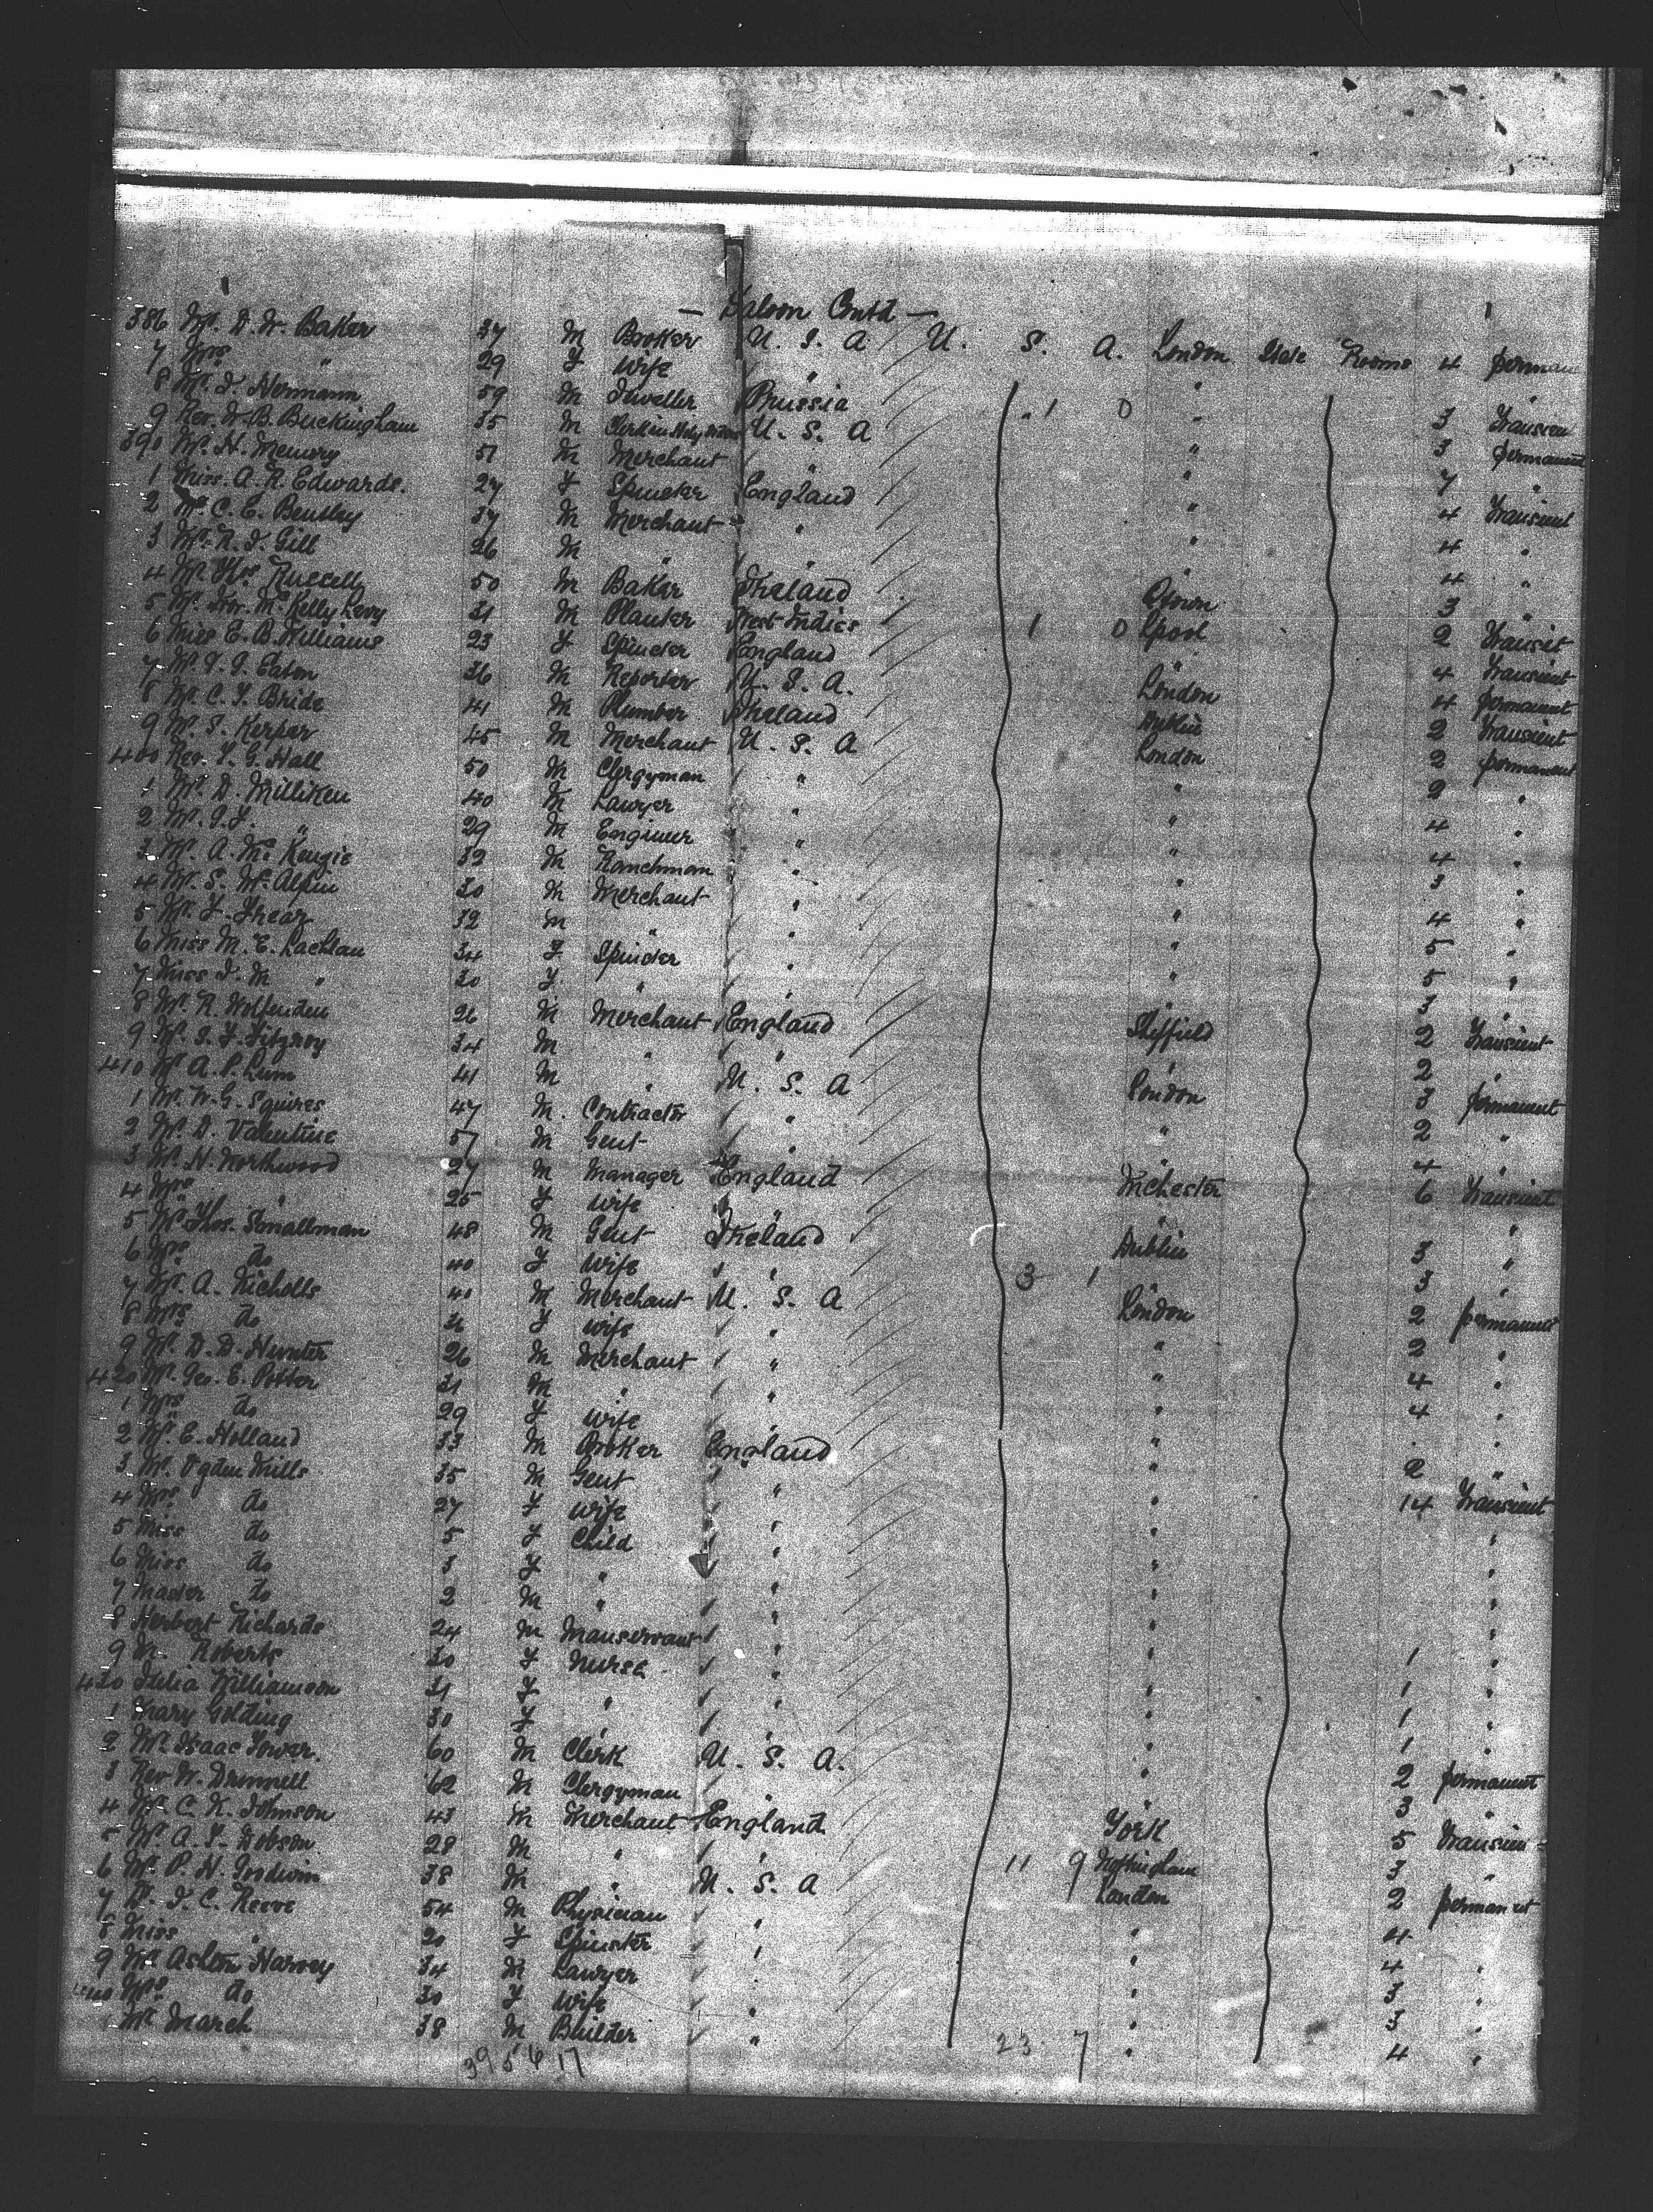 — Saloon Contd —
386 Mr. D. W. Baker 37 M Broker U. S. A U. S. A. London State Rooms 4 perman
7 Mrs " 29 F Wife " "
8 Mr. I. Hermann 59 M Jeweller Prussia 1 0 " 3 Transien
9 Rev. D. B. Buckingham 35 M Clerk in Holy Orders U. S. A " 3 permanent
390 Mr. H. Memory 51 M Merchant " " 7 "
1 Miss. A. R. Edwards. 27 F Spinster England " 4 Transient
2 Mr C. E. Bentley 37 M Merchant " " 4 "
3 Mr. R. I. Gill 26 M " " 4 "
4 Mr Thos Russell 50 M Baker Ireland Qtown 3 "
5 Mr. Mc Kelly Levy 31 M Planter West Indies 1 0 Lpool 2 Transit
6 Miss E. B. Williams 23 F Spinster England " 4 Transient
7 Mr. Eaton 36 M Reporter U. S. A. London 4 permanent
8 Mr. C. F. Bride 41 M Plumber Ireland Dublin 2 Transient
9 Mr. S. Kerper 45 M Merchant U. S. A London 2 permanent
400 Rev. F. G. Hall 50 M Clergyman " " 2 "
1 Mr. D. Milliken 40 M Lawyer " " 4 "
2 Mr. " 29 M Engineer " " 4 "
3 Mr. A. Mc Kenzie 32 M Ranchman " " 3 "
4 Mr. S. Mc Alpin 30 M Merchant " " 4 "
5 Mr. F. 32 M " " " 5 "
6 Miss M. E. Lachlan 34 F Spinster " " 5 "
7 Miss I. M " 30 F " " " 3 "
8 Mr. R. Wolfenden 26 M Merchant England Sheffield 2 Transient
9 Mr. Fitzroy 34 M " " " 2 "
410 Mr A. P. Lum 41 M " U. S. A London 3 permanent
1 Mr. W. G. Squires 47 M. Contractor " " 2 "
2 Mr. D. Valentine 57 M Gent " " 4 "
3 Mr. H. Northwood 27 M Manager England Mchester 6 Transient
4 Mrs " 25 F Wife " " "
5 Mr Thos. Smallman 48 M Gent Ireland Dublin 3 "
6 Mrs do 40 F Wife " 3 1 " 3 "
7 Mr. A. Nicholls 41 M Merchant U. S. A London 2 permanent
8 Mrs do F Wife " " 2 "
9 Mr. D. D. Hunter 26 M Merchant " " 4 "
420 Mr. Geo. E. Potter 31 M " " " 4 "
1 Mrs do 29 F Wife " " "
2 Mr. E. Holland 33 M Broker England " 2 "
3 Mr. Ogden Mills 35 M Gent " " 14 Transient
4 Mrs do 27 F Wife " " "
5 Miss do 5 F Child " " "
6 Miss do 3 F " " " "
7 Master do 2 M " " " "
8 Herbert Richards 24 M Manservant " " 1 "
9 M. Roberts 30 F Nurse " " 1 "
430 Julia Williamson 31 F " " " 1 "
1 Mary Golding 30 F " " " 1 "
2 Mr. Isaac 60 M Clerk U. S. A. " 2 permanent
3 Rev W. Drennell 62 M Clergyman " " 3 "
4 Mr. C. K. Johnson 43 M Merchant England York 5 Transien
5 Mr. A. F. Dobson 28 M " " 11 9 Nottingham 3 "
6 Mr. P. H. Godwin 38 M " U. S. A London 2 permanent
7 Dr. I. C. Reeve 54 M Physician " " 4 "
8 Miss " 20 F Spinster " " 4 "
9 Mr. Ashton Harvey 34 M Lawyer " " 3 "
440 Mrs do 30 F Wife " " 3 "
Mr March 38 M Builder " 23 7 " 4 "
39 5 6 17